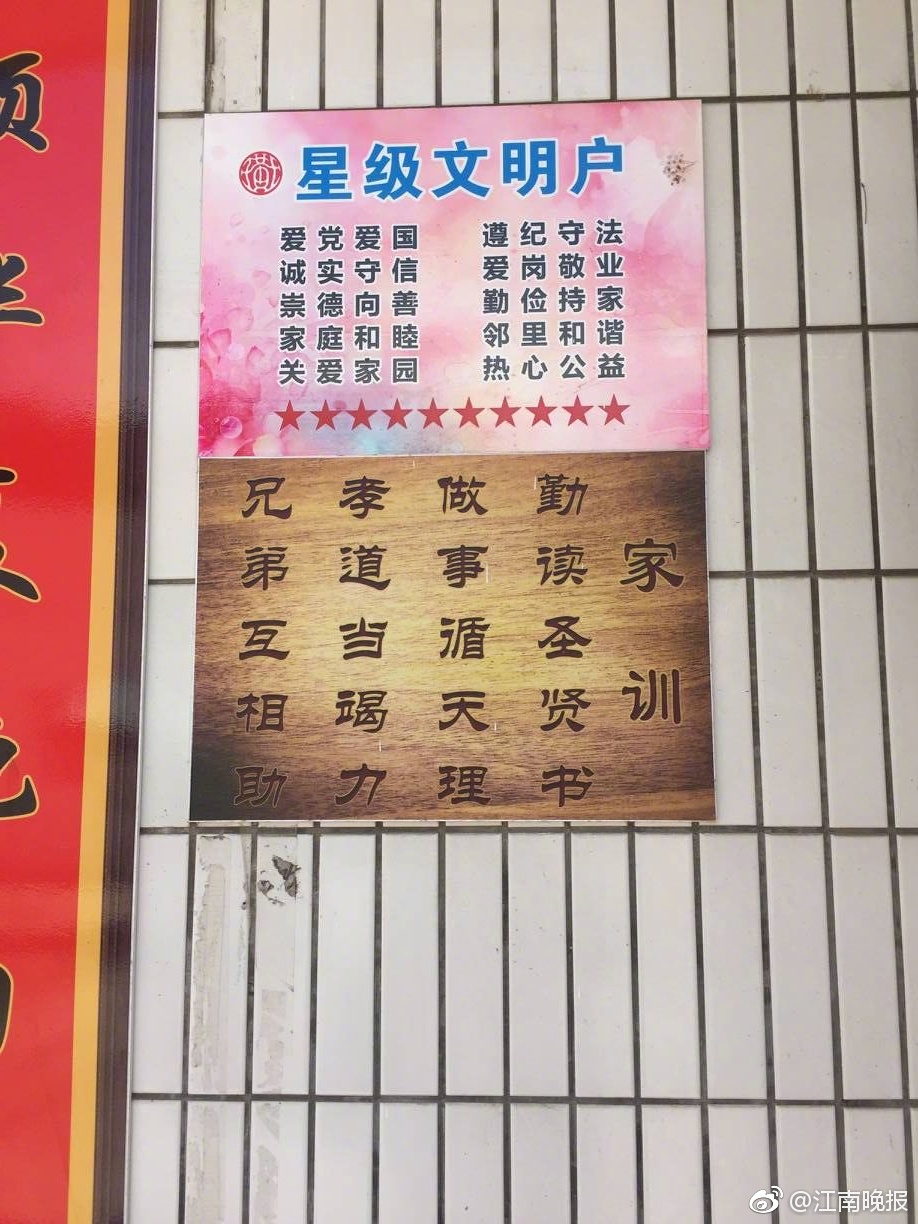 星级文明户
爱党爱国
诚实守信
崇德向善
家庭和睦
关爱家园
遵纪守法
爱岗敬业
勤俭持家
邻里和谐
热心公益
家训
勤读圣贤书
做事循天理
孝道当竭力
兄弟互相助
@江南晚报